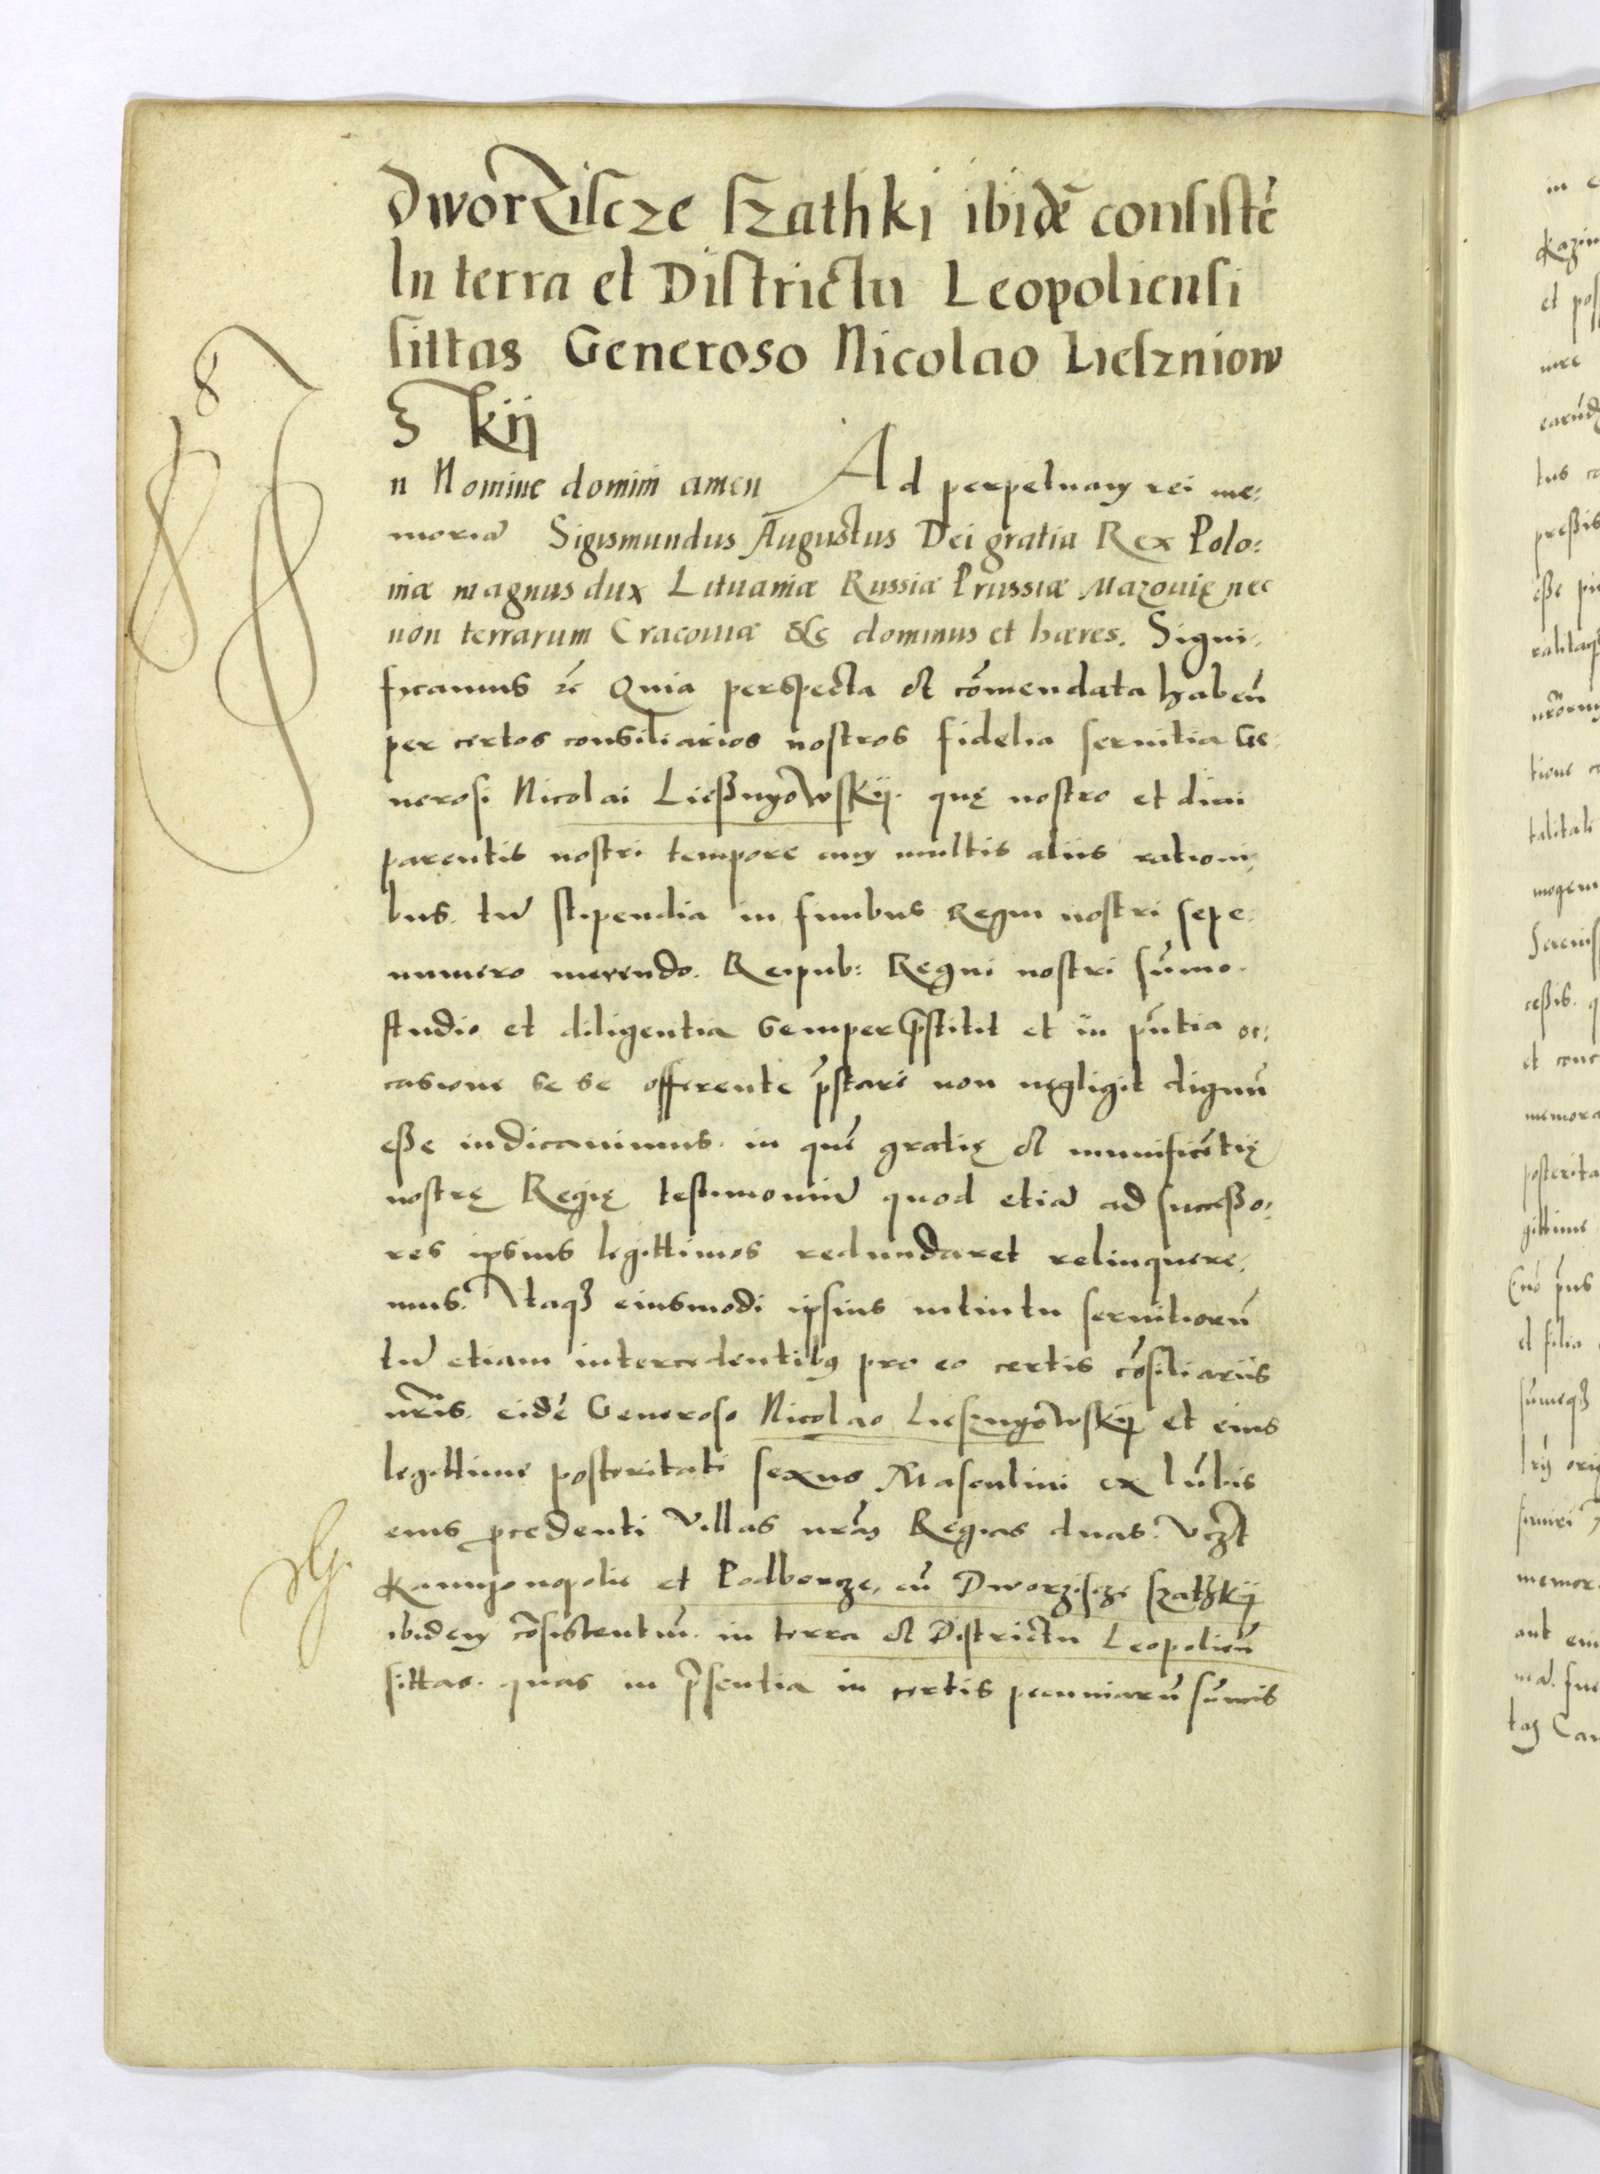 Dworziscze szathki ibidē consistē
In terra et Districtu Leopoliensi
sittas Generoso Nicolao Lieszniow
skij
n Nomine domini amen Ad perpetuam rei me:
moriā Sigismundus Augustus Dei gratia Rex Polo:
niæ magnus dux Lituaniæ Russiæ Prussiæ Mazouię nec
non terrarum Cracouiæ &c dominus et hæres. Signi:
ficamus &c Quia perspecta et cōmendata habeñ
per certos consiliarios nostros fidelia seruitia Ge:
nerosi Nicolai Ließnyowskij. quę nostro et diui
parentis nostri tempore cum multis aliis rationi:
bus. tū stipendia in finibus Regni nostri sepe:
numero merendo. Reipub: Regni nostri sūmo.
studio et diligentia semper p̄stitit et in p̄ntia oc:
casione se se offerente p̄stare non negligit dignū
eße iudicauimus. in quē gratię et munificētię
nostrę Regię testimoniū quod etiā ad succeßo:
res ipsius legittimos redundaret relinquere:
mus. Itaqȝ eiusmodi ipsius intuitu seruitiorū
tū etiam intercedentibus pro eo certis cōsiliariis
nr̄is. eidē Generoso Nicolao Liesznyowskij et eius
legittime posteritati sexus Masculini ex lūbis
eius procedenti Villas nr̄as Regias duas. Vczt
Kamyonopolie et Podborcze, cū Dworzisczе szathkij
ibidem cōsistentiū. in terra et Districtu Leopolieñ
sittas. quas in p̄sentia in certis pecuniarū sūmis